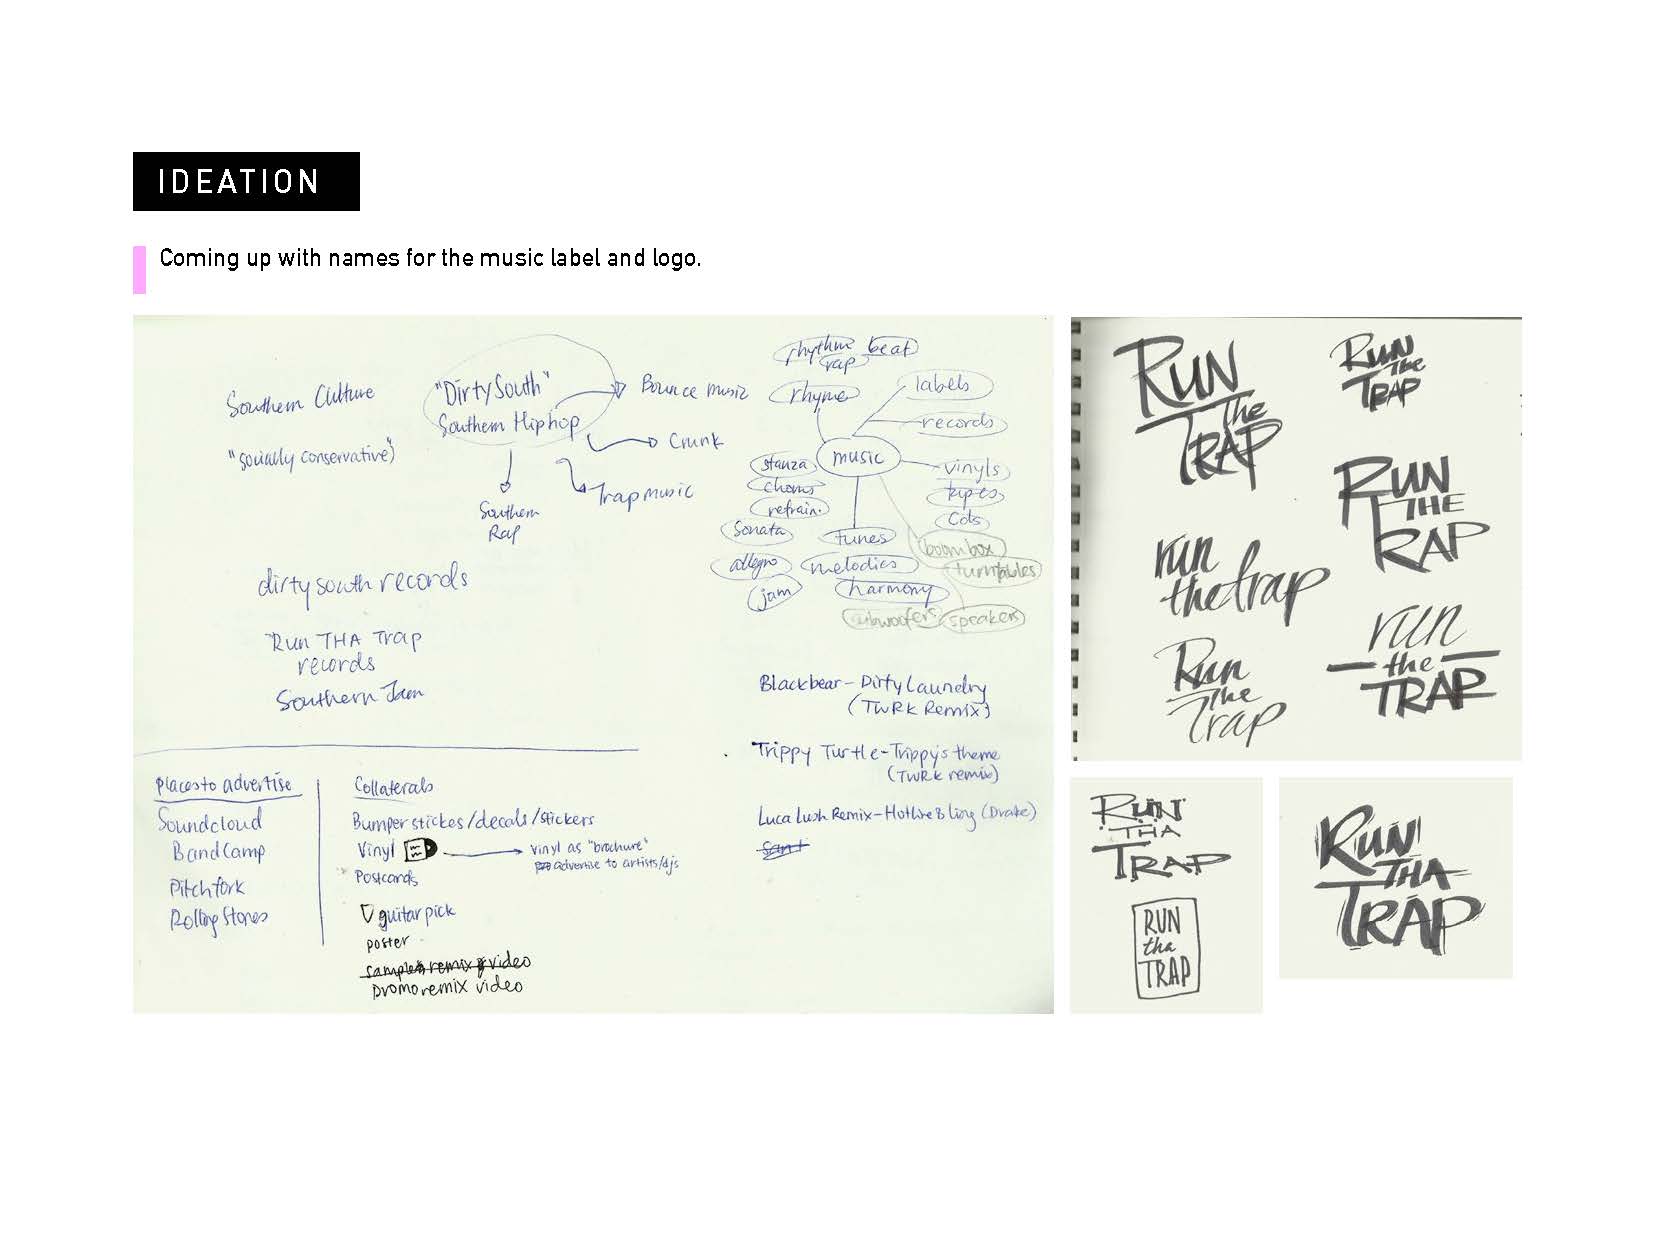 IDEATION
Coming up with names for the music label and logo.
Southern Culture
"socially conservative"
"Dirty South"
Southern Hiphop
Bounce music
Crunk
Trap music
Southern
Rap
dirty south records
Run THA Trap
records
Southern Jam
rhythm beat
rap
rhyme
labels
records
music
vinyls
tapes
Cds
stanza
chorus
refrain.
Sonata
allegro
jam
tunes
melodies
harmony
boombox
turntables
subwoofers
speakers
Blackbear - Dirty Laundry
(TWRK Remix)
Trippy Turtle - Trippy's theme
(TWRK remix)
Luca Lush Remix - Hotline Bling (Drake)
places to advertise
Soundcloud
BandCamp
Pitchfork
Rolling Stones
Collaterals
Bumper stickes/decals/stickers
Vinyl
vinyl as "brochure"
advertise to artists/djs
Postcards
guitar pick
poster
sample remix video
promo remix video
RUN
The
TRAP
RUN
the
TRAP
RUN
THE
TRAP
run
the trap
run
the
TRAP
Run
The
Trap
RUN
THA
TRAP
RUN
tha
TRAP
RUN
THA
TRAP